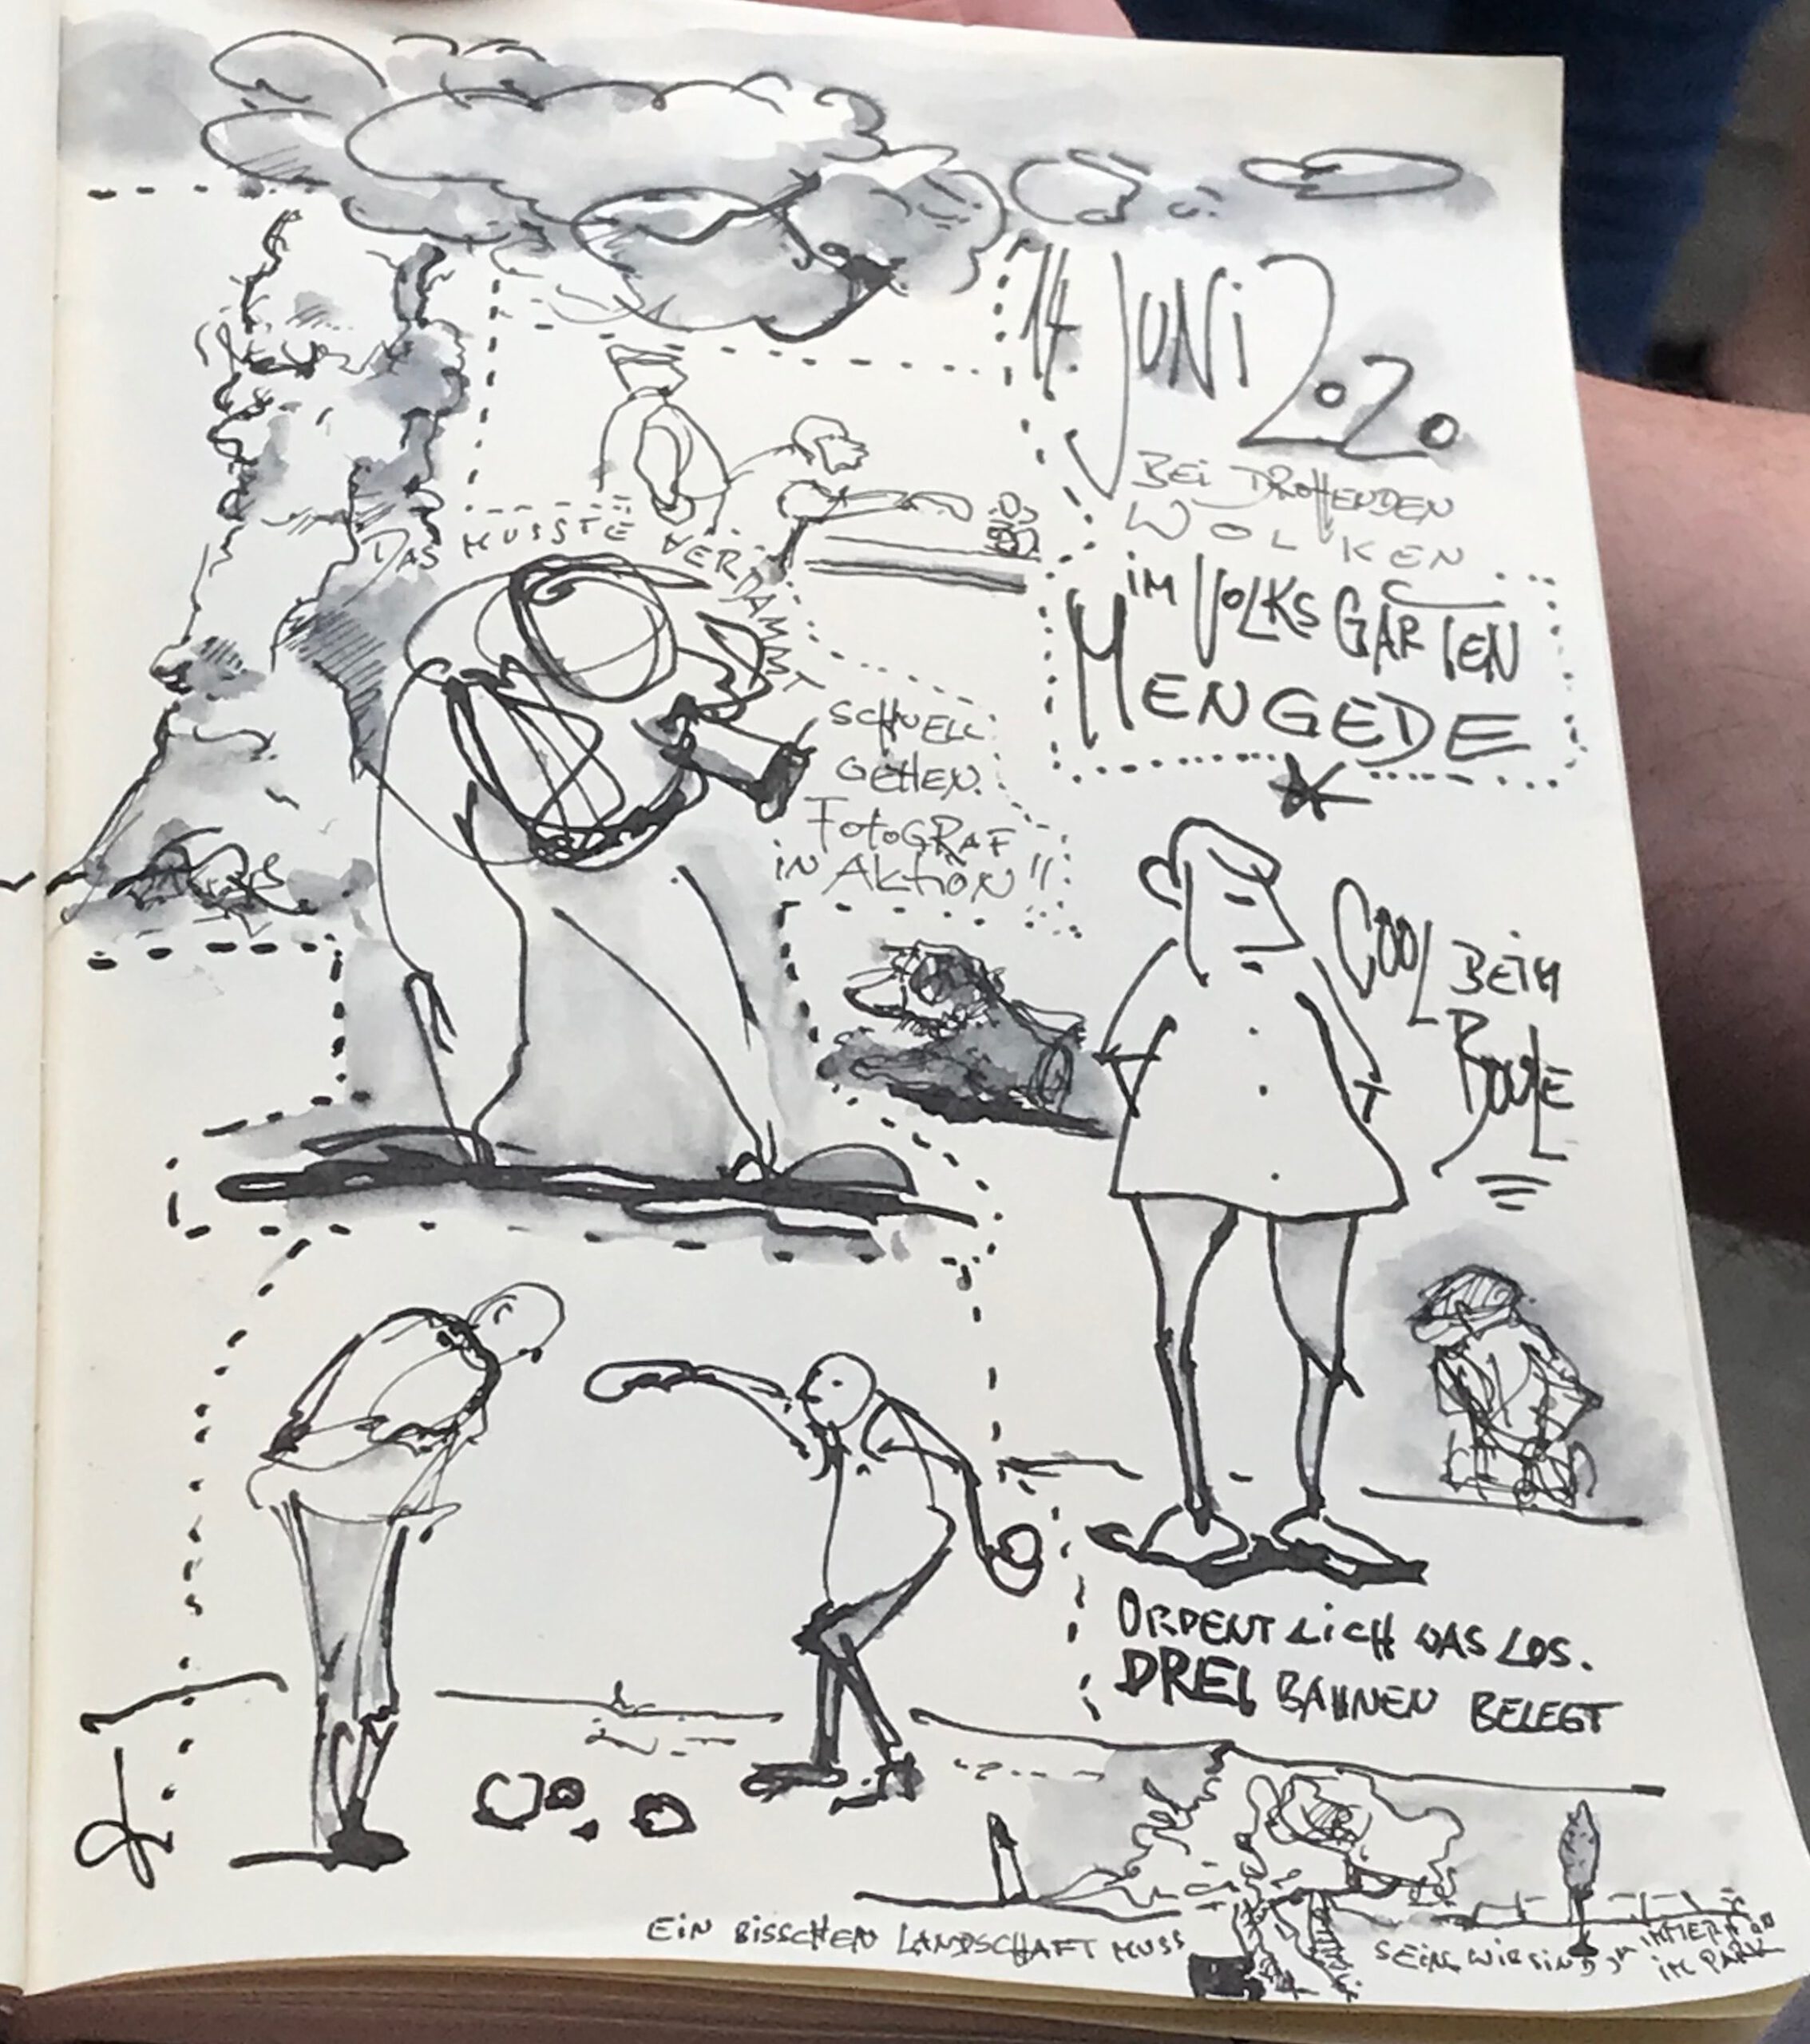 14. JUNI 2020
BEI DROHENDEN
WOLKEN
IM VOLKSGARTEN
MENGEDE
DAS MUSSTE VERDAMMT
SCHNELL
GEHEN.
FOTOGRAF
IN AKTION!!
COOL BEIM
BOULE
ORDENTLICH WAS LOS.
DREI BAHNEN BELEGT
EIN BISSCHEN LANDSCHAFT MUSS
SEIN, WIR SIND JA IMMERHIN
IM PARK